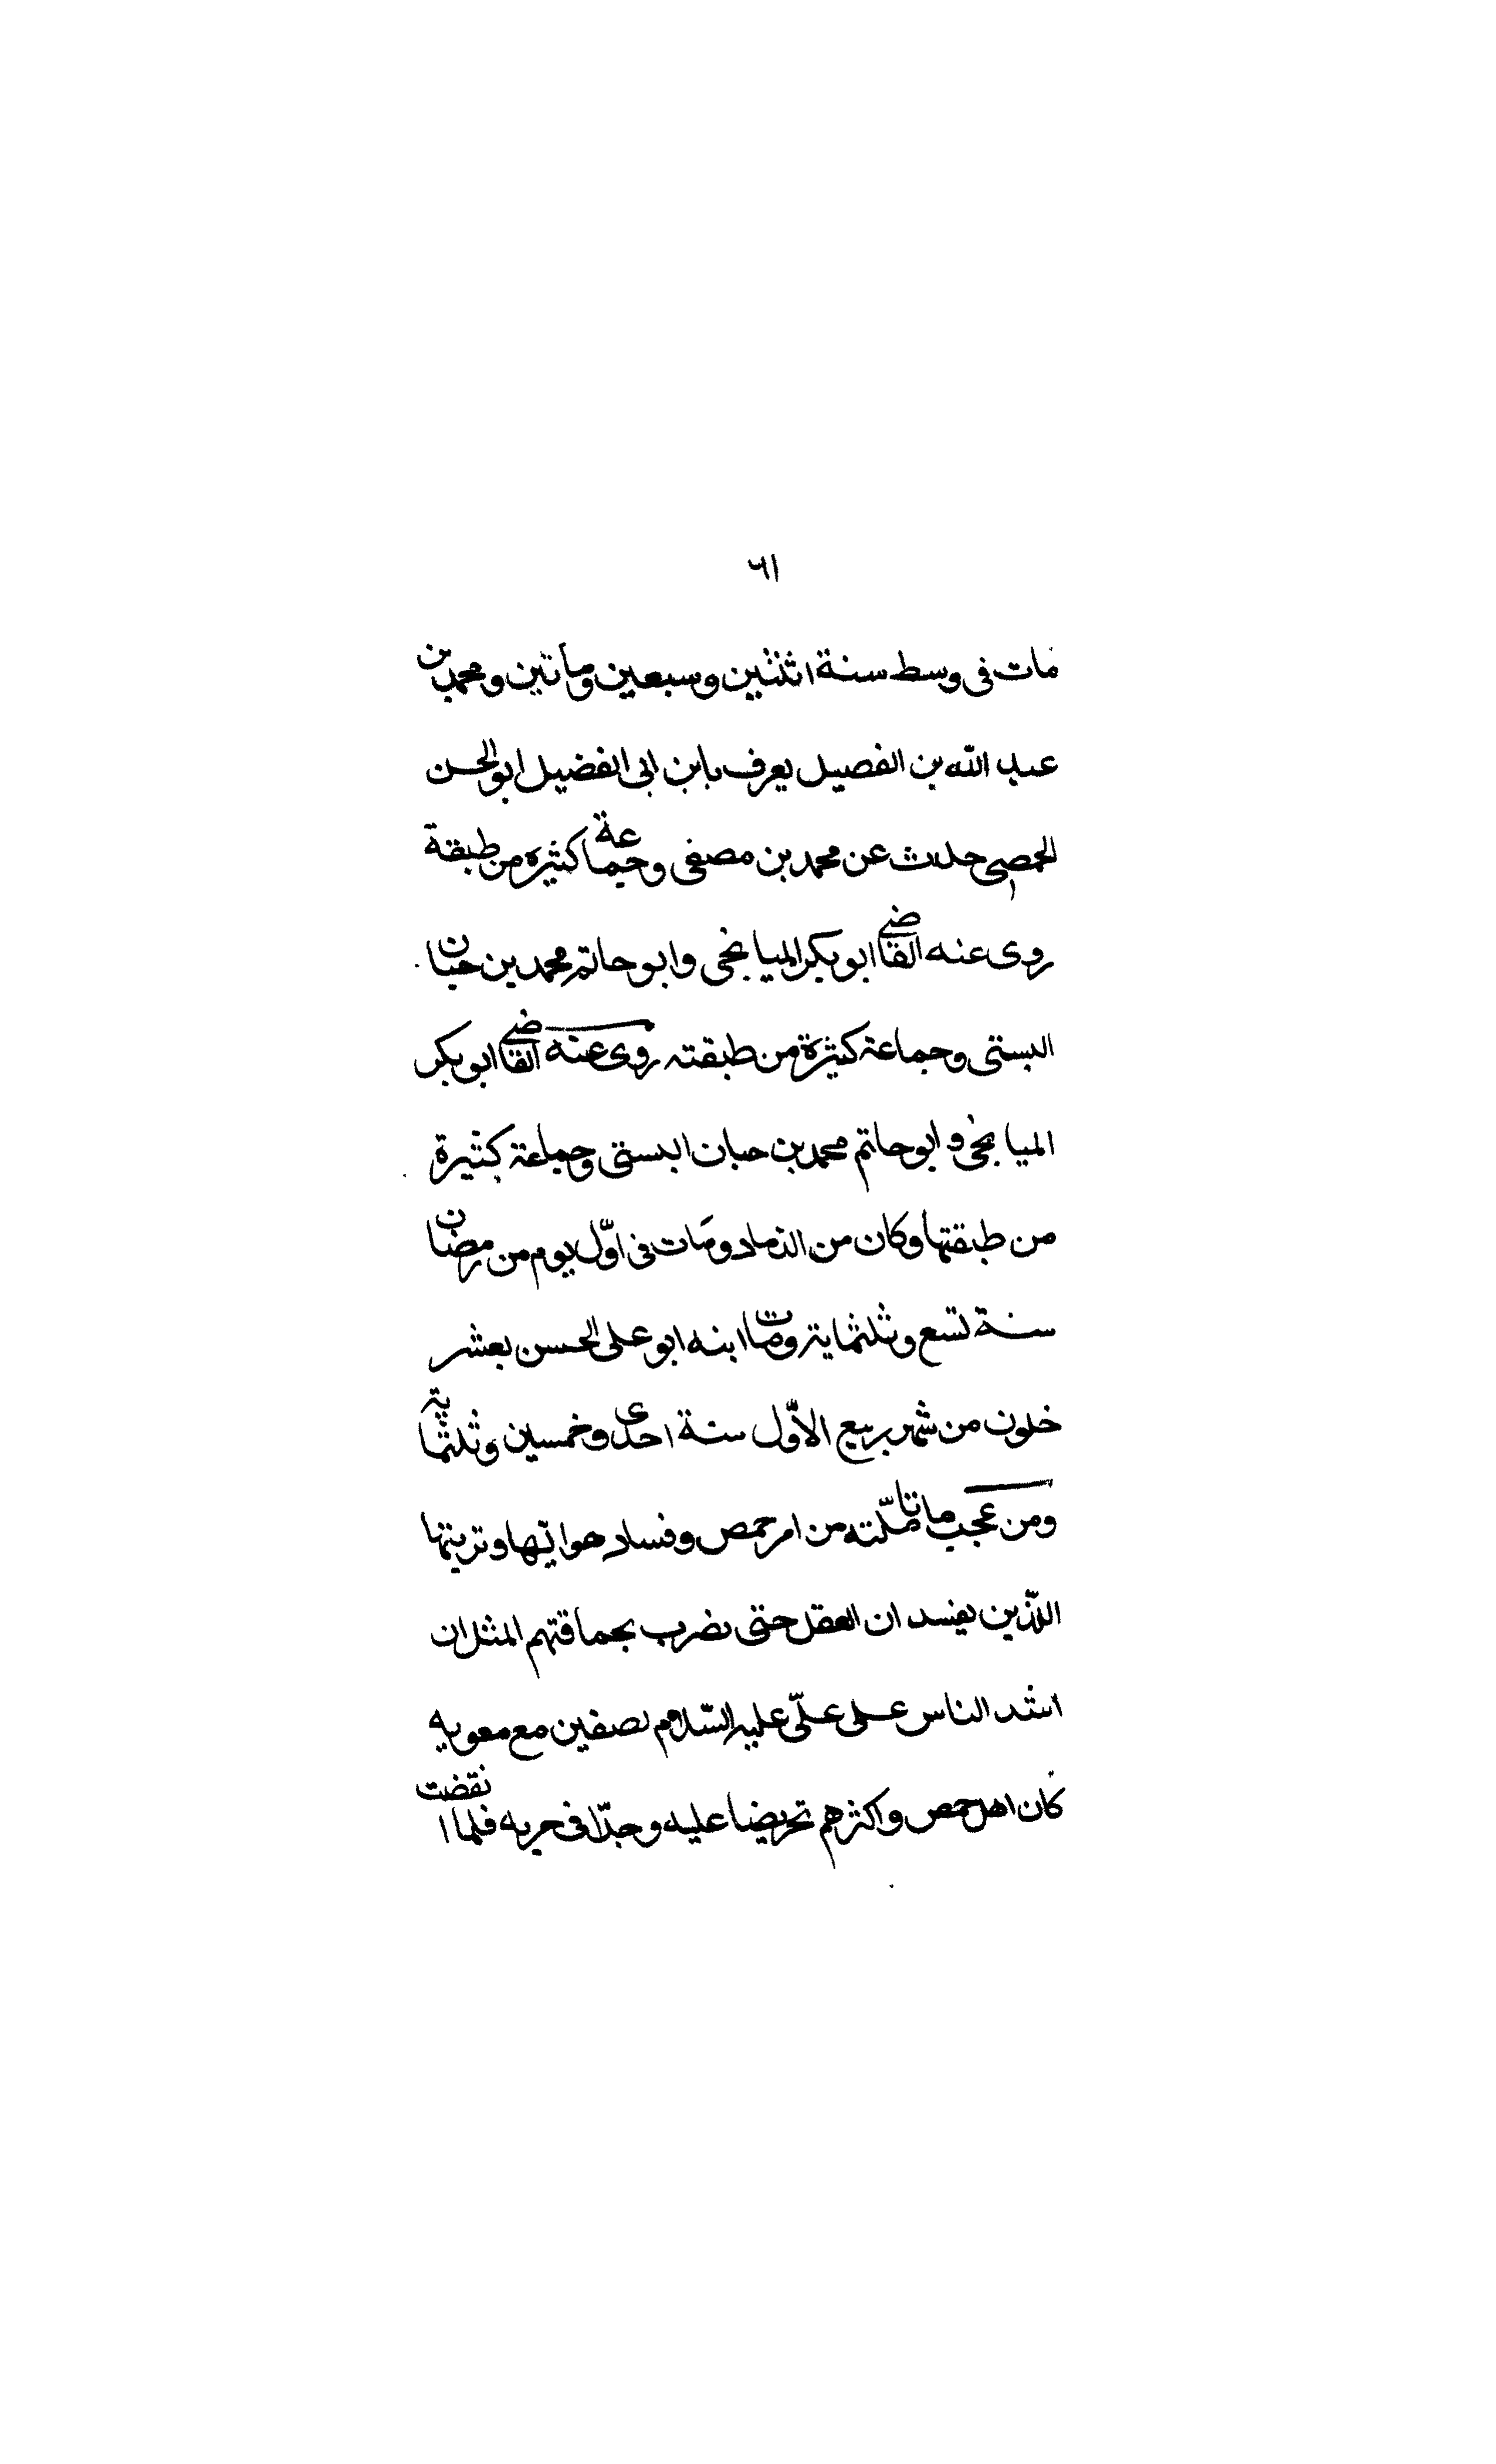 ٦١
مات فى وسط سنة اثنتين وسبعين ومأتين ومحمد بن
عبد الله بن الفصيل يعرف بابن ابى الفضيل ابو الحسن
الحمصى حدث عن محمد بن مصفى وجماعة كثيره من طبقة
روى عنه القاضى ابو بكر الميانجى وابو حاتم محمد بن حبان
البستى وجماعة كثيرة من طبقته روى عنه القاضى ابو بكر
الميانجى و ابو حاتم محمد بن حبان البستى وجماعة كثيرة
من طبقتها وكان من الزهاد ومات فى اوّل يوم من رمضان
سنة تسع وثلثماية ومات ابنه ابو على الحسن بعشر
خلون من شهر ربيع الاوّل سنة احدى وخمسين وثلثماية
ومن عجب ما تاملّته من امر حمص وفساد هوائها وتربتها
اللذين يفسدان العقل حتى يضرب بحماقتهم المثل ان
اشد الناس على علىّ عليه السّلام بصفين مع معويه
كان اهل حمص واكثرهم تحريضا عليه وجدّا فى حربه فلما انقضت